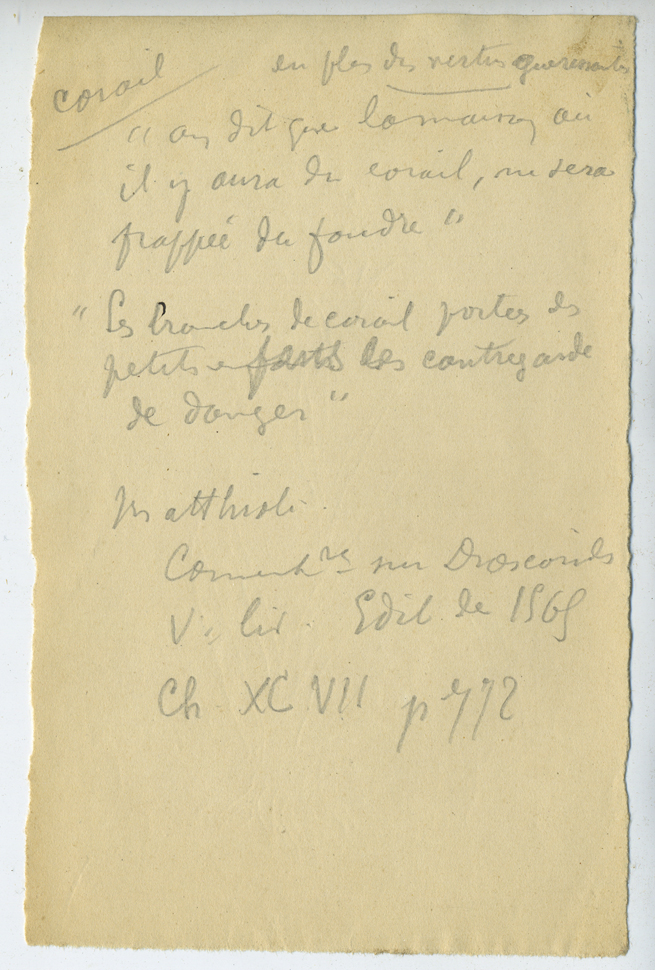 corail
en plus des vertus guérissantes
" on dit que la maison où
il y aura du corail, ne sera
frappée du foudre "
" Les branches de corail portés des
petits enfants les contregarde
de danger "
Matthioli
Coment^res sur Dioscoride
V. liv. Edit de 1565
Ch XCVII p 772